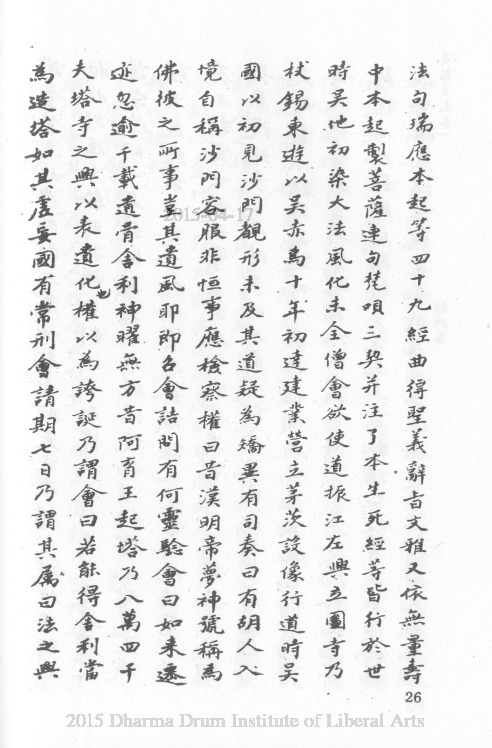 法句瑞應本起等四十九經曲得聖義辭旨文雅又依無量壽
中本起製菩薩連句梵唄三契并注了本生死經等皆行於世
時吴地初染大法風化未全僧會欲使道振江左興立圖寺乃
杖錫東遊以吴赤烏十年初達建業營立茅茨設像行道時吴
國以初見沙門覩形未及其道疑為矯異有司奏曰有胡人入
境自稱沙門容服非恒事應檢察權曰昔漢明帝夢神號稱為
佛彼之所事豈其遺風耶即召會詰問有何靈驗會曰如来遷
迹忽逾千載遺骨舍利神曜無方昔阿育王起塔乃八萬四千
夫塔寺之興以表遺化也權以為誇誕乃謂會曰若能得舍利當
為造塔如其虛妄國有常刑會請期七日乃謂其属曰法之興
2015-04-17
26
2015 Dharma Drum Institute of Liberal Arts